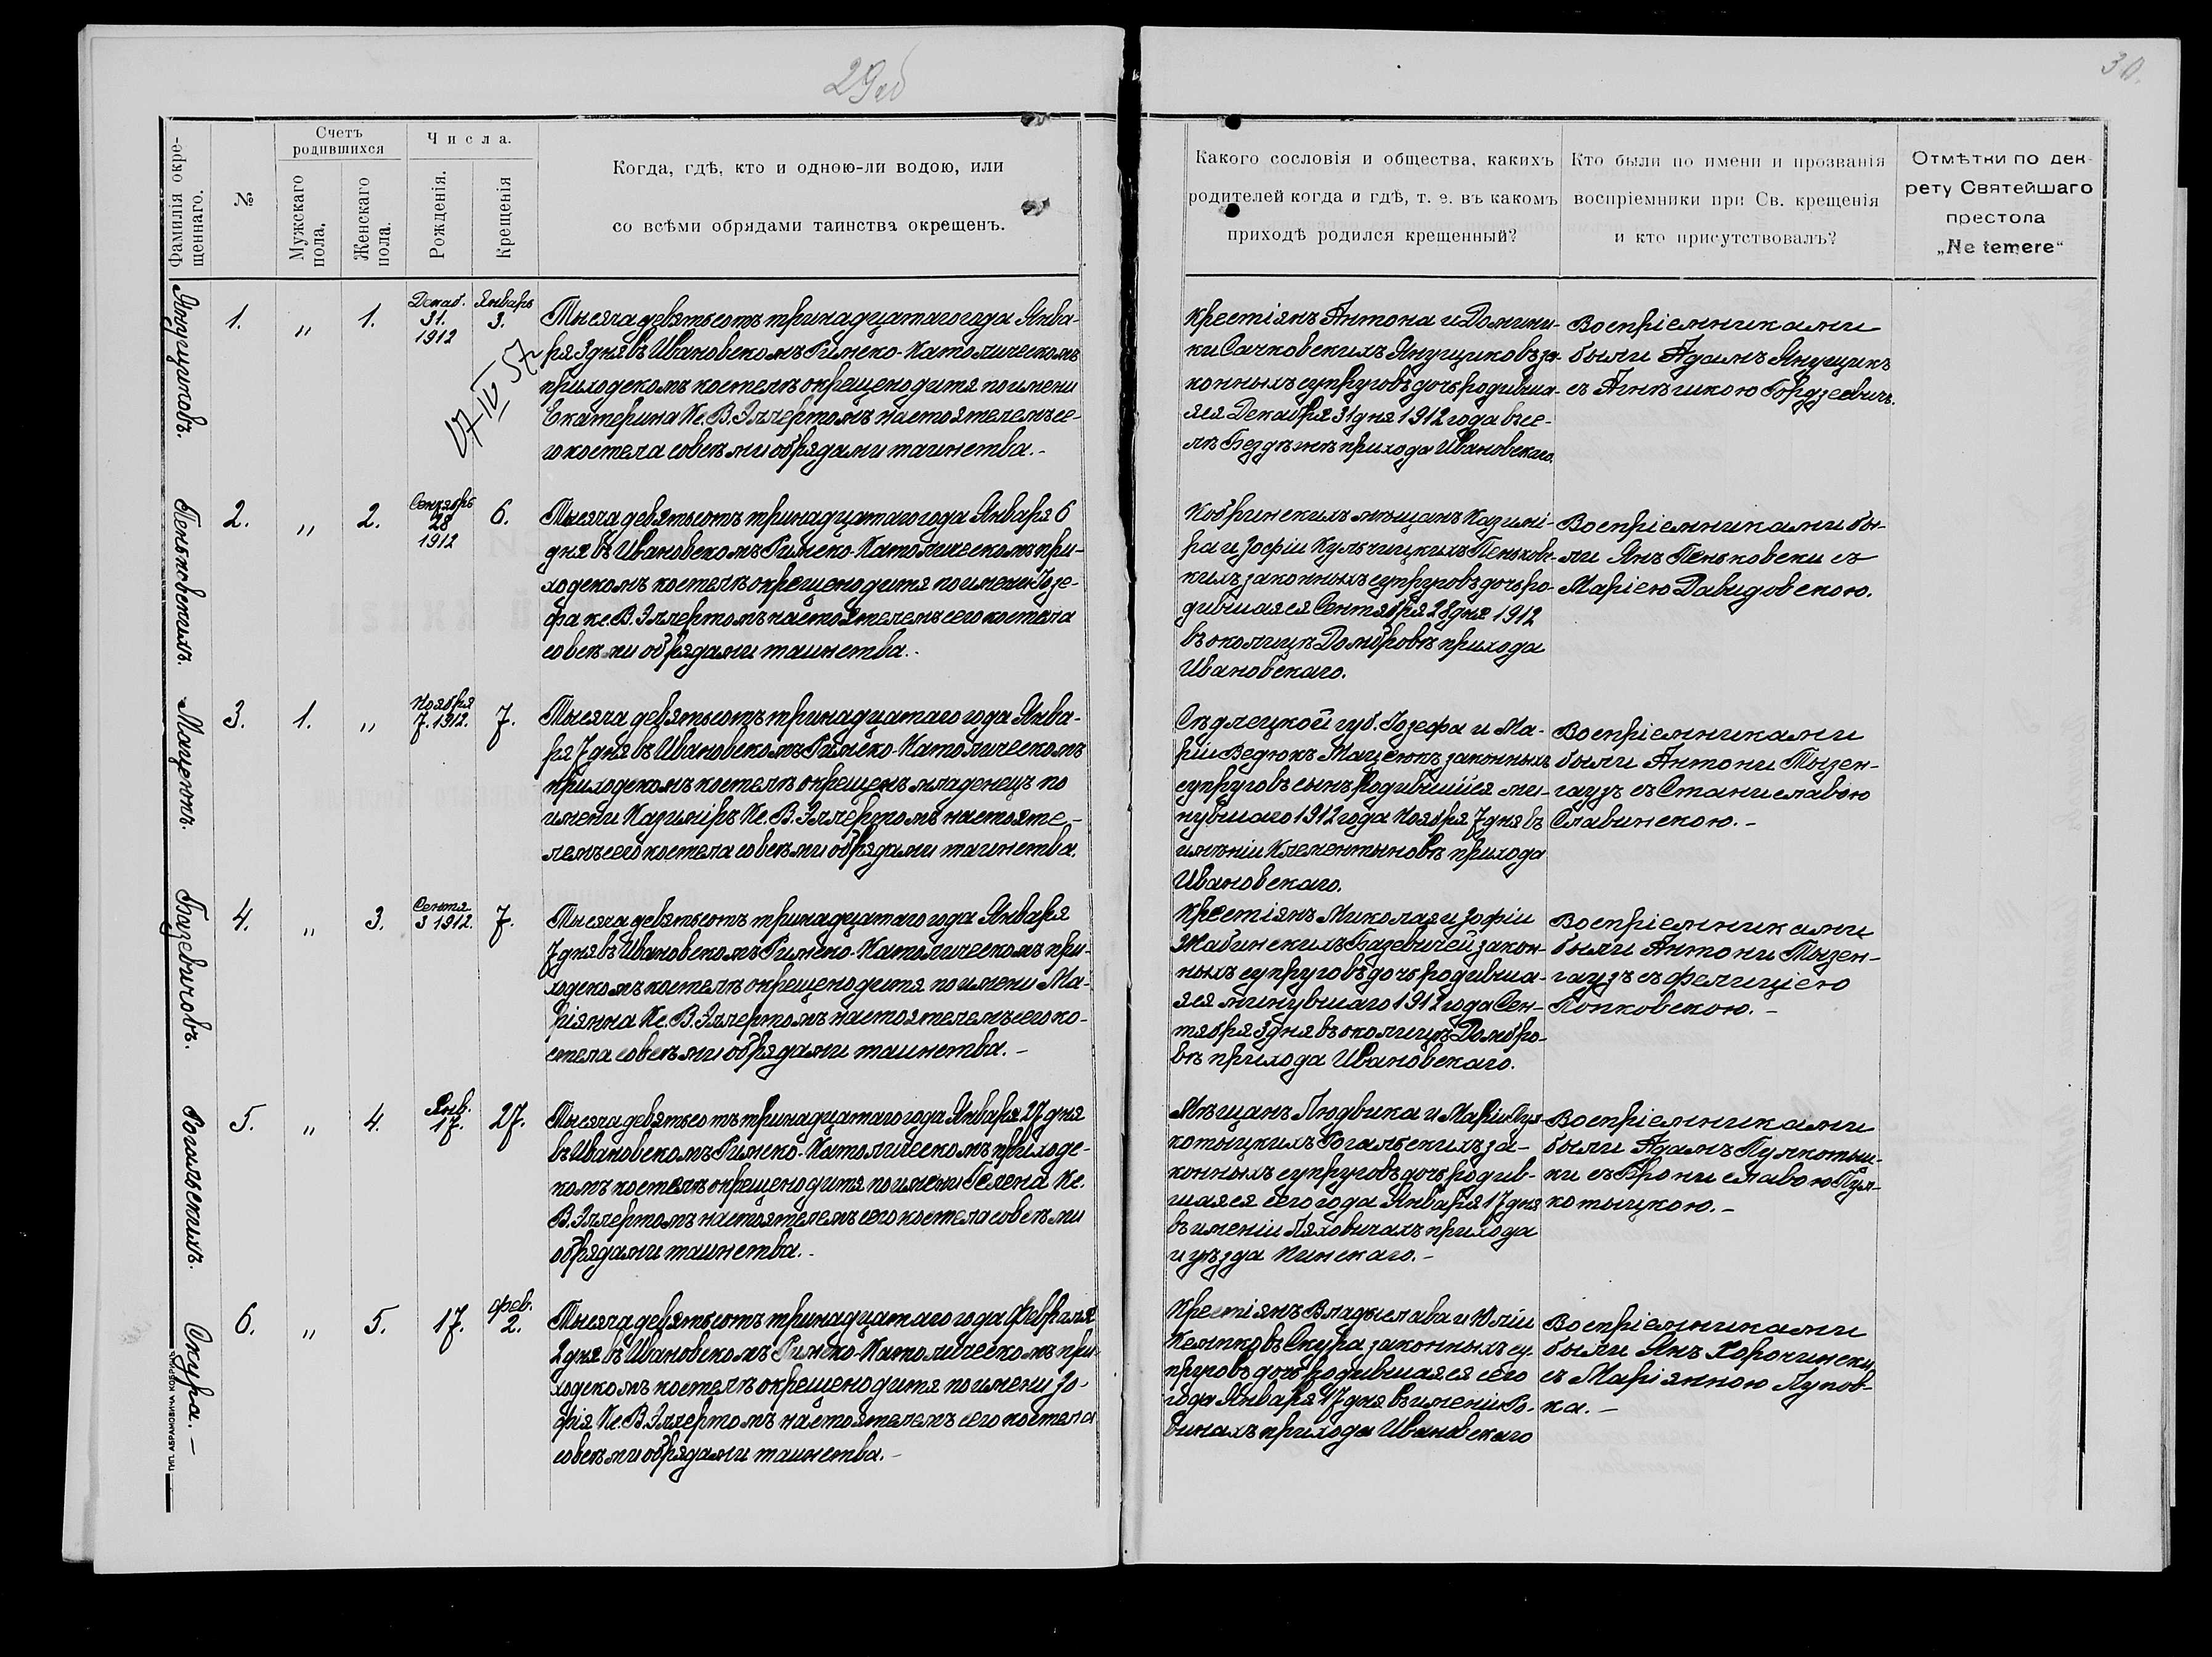 29об
30.
Фамилія окре-
щеннаго.
№
Счетъ
родившихся
Мужскаго
пола.
Женскаго
пола.
Числа.
Рожденія.
Крещенія
Когда, гдѣ, кто и одною-ли водою, или
со всѣми обрядами таинства окрещенъ.
Какого сословія и общества, какихъ
родителей когда и гдѣ, т. е. въ какомъ
приходѣ родился крещенный?
Кто были по имени и прозванія
воспріемники при Св. крещенія
и кто присутствовалъ?
Отмѣтки по дек-
рету Святейшаго
престола
„Ne temere“
Янущиковъ.
1.
„
1.
Декаб.
31.
1912
Январь
3.
17-IV 57
Тысяча девятьсотъ тринадцатаго года Янва-
ря 3 дня въ Ивановскомъ Римско-Католическомъ
приходскомъ костелѣ окрещено дитя по имени
Екатерина Кс. В. Эллертомъ настоятелемъ се-
го костела со всѣми обрядами таинства.-
крестіянъ Антона и Домини-
ки Сачковскихъ Янущиковъ за-
конныхъ супруговъ дочь родивша-
яся Декабря 31 дня 1912 года въ се-
лѣ Бездѣжѣ прихода Ивановскаго.
Воспріемниками
были Адамъ Янущикъ
съ Агнѣшкою Гордзеевичъ.
Пеньковскихъ.
2.
„
2.
Сентября
28
1912
6.
Тысяча девятьсотъ тринадцатаго года Января 6
дня въ Ивановскомъ Римско-Католическомъ при-
ходскомъ костелѣ окрещено дитя по имени Юзе-
фа кс. В. Эллертомъ настоятелемъ сего костела
со всѣми обрядами таинства.-
Кобринскихъ мѣщанъ Казимі-
ра и Зофіи Кульчицкихъ Пеньковс-
кихъ законныхъ супруговъ дочь ро-
дившаяся Сентября 28 дня 1912
въ околицѣ Домбровѣ прихода
Ивановскаго.
Воспріемниками бы-
ли Янъ Пеньковски съ
Маріею Давидовскою.
Мацеюкъ.
3.
1.
„
Ноября
7. 1912.
7.
Тысяча девятьсотъ тринадцатаго года Янва-
ря 7 дня въ Ивановскомъ Римско-Католическомъ
приходскомъ костелѣ окрещенъ младенецъ по
имени Казиміръ Кс. В. Эллертомъ настояте-
лемъ сего костела со всѣми обрядами таинства.
Сѣдлецкой губ. Юзефа и Ма-
ріи Ведюкъ Мацеюкъ законныхъ
супруговъ сынъ родившійся ми-
нувшаго 1912 года Ноября 7 дня въ
имѣніи Клементыновѣ прихода
Ивановскаго.
Воспріемниками
были Антони Тызен-
гаузъ съ Станиславою
Славинскою.-
Базевичовъ.
4.
„
3.
Сентя.
3 1912.
7.
Тысяча девятьсотъ тринадцатаго года Января
7 дня въ Ивановскомъ Римско-Католическомъ при-
ходскомъ костелѣ окрещено дитя по имени Ма-
рянна Кс. В. Эллертомъ настоятелемъ сего ко-
стела со всѣми обрядами таинства.-
Крестіянъ Миколая и Зофіи
Жабинскихъ Базевичей закон-
ныхъ супруговъ дочь родивша-
яся минувшаго 1912 года Сен-
тября 3 дня въ околицѣ Домбро-
вѣ прихода Ивановскаго.
Воспріемниками
были Антони Тызен-
гаузъ съ Фелиціею
Попковскою.-
Рогальскихъ.
5.
„
4.
Янв.
17.
27.
Тысяча девятьсотъ тринадцатаго года Января 27 дня
въ Ивановскомъ Римско-Католическомъ приходс-
комъ костелѣ окрещено дитя по имени Гелена Кс.
В. Эллертомъ настоятелемъ сего костела со всѣми
обрядами таинства.-
Мѣщанъ Людвика и Маріи Пул-
котыцкихъ Рогальскихъ за-
конныхъ супруговъ дочь родив-
шаяся сего года Января 17 дня
въ имѣніи Ляховичахъ прихода
и уѣзда Пинскаго.-
Воспріемниками
были Адамъ Пулкотыц-
ки съ Брониславою Пул-
котыцкою.-
Скура.-
6.
„
5.
17.
Фев.
2.
Тысяча девятьсотъ тринадцатаго года Февраля
2 дня въ Ивановскомъ Римско-Католическомъ при-
ходскомъ костелѣ окрещено дитя по имени Зо-
фія Кс. В. Эллертомъ настоятелемъ сего костела
со всѣми обрядами таинства.-
Крестіянъ Владыслава и Юліи
Кемпковъ Скура законныхъ су-
пруговъ дочь родившаяся сего
года Января 17 дня въ имѣніи Ро-
винахъ прихода Ивановскаго
Воспріемниками
были Янъ Хорошински
съ Маріянною Лупов-
ка.-
ТИП. АБРАМОВИЧА КОБРИНЪ